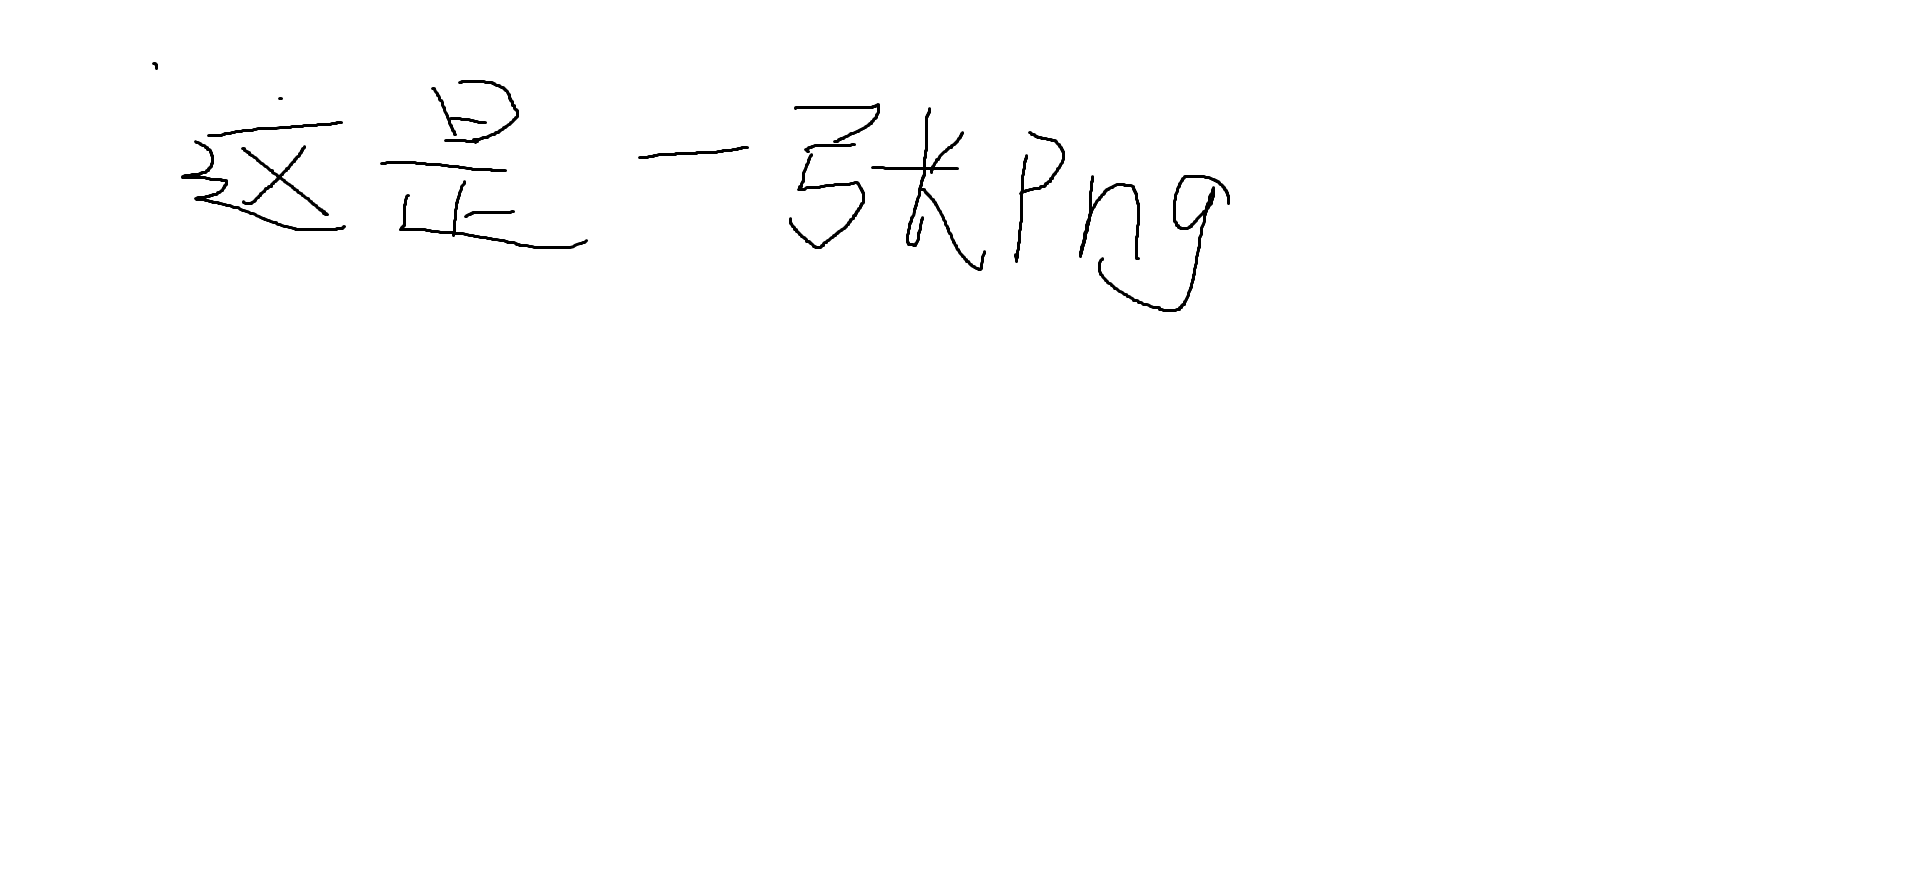 这是一张Png